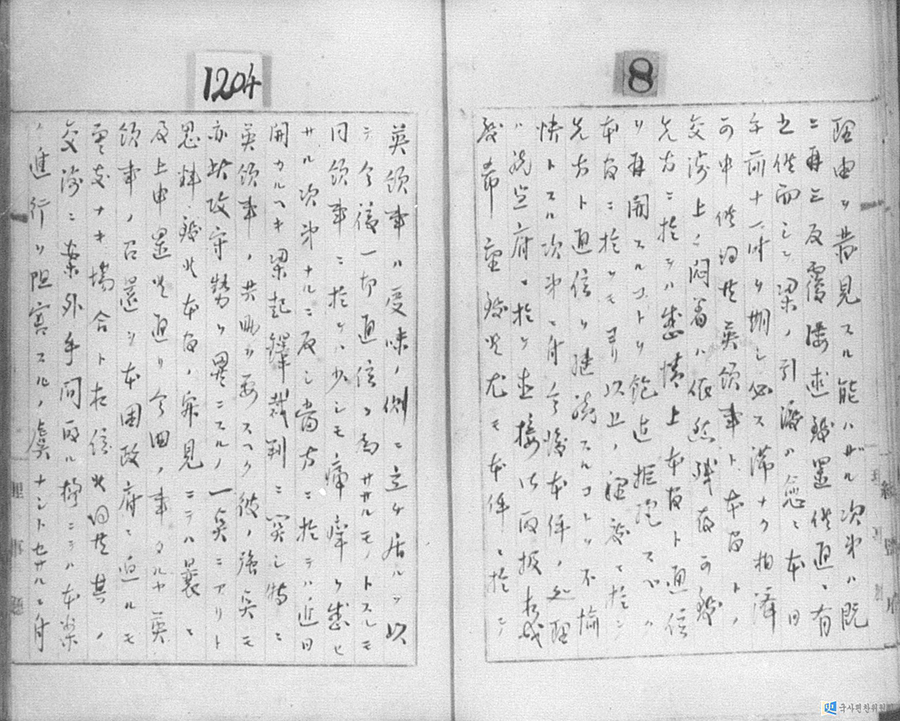 8
理由ヲ発見スル能ハザル次第ハ既
ニ再三反覆縷述致置候通ニ有
之候而シテ梁ノ引渡ハ愈々本日
午前十一時ヲ期シ必ス滞ナク相済
可申候得共英領事ト本官トノ
交渉上ノ悶着ハ依然残存可致
先方ニ於テハ感情上本官ト通信
ヲ再開スルコトヲ飽迄拒絶スベク
本官ニ於テモ
先方ト通信ヲ継続スルコトヲ不愉
快トスル次第ニ付今後本件ノ処理
ハ統監府ニ於テ直接御取扱相成
致希望候尤モ本件ニ於テ
1204
英領事ハ受味ノ側ニ立テ居ルヲ以
テ今後一切通信ヲ為ササルモノトスルモ
同領事ニ於テハ少シモ痛痒ヲ感セ
サル次第ナルニ反シ当方ニ於テハ近日
開カルヘキ梁起鐸裁判ニ関シ特ニ
英領事ノ共助ヲ要スヘク彼ノ強英モ
亦攻守勢ヲ異ニスルノ一点ニアリト
思料致候本官ノ卑見ニテハ曩ニ
及上申置候通リ今回ノ事タルヤ英
領事ノ召還ヲ本国政府ニ迫ルモ
差支ナキ場合ト相信候得共其ノ
交渉ニ案外手間取ル様ニテハ本案
ノ進行ヲ阻害スルノ虞ナシトセサルニ付
理事廳
統監府
국사편찬위원회